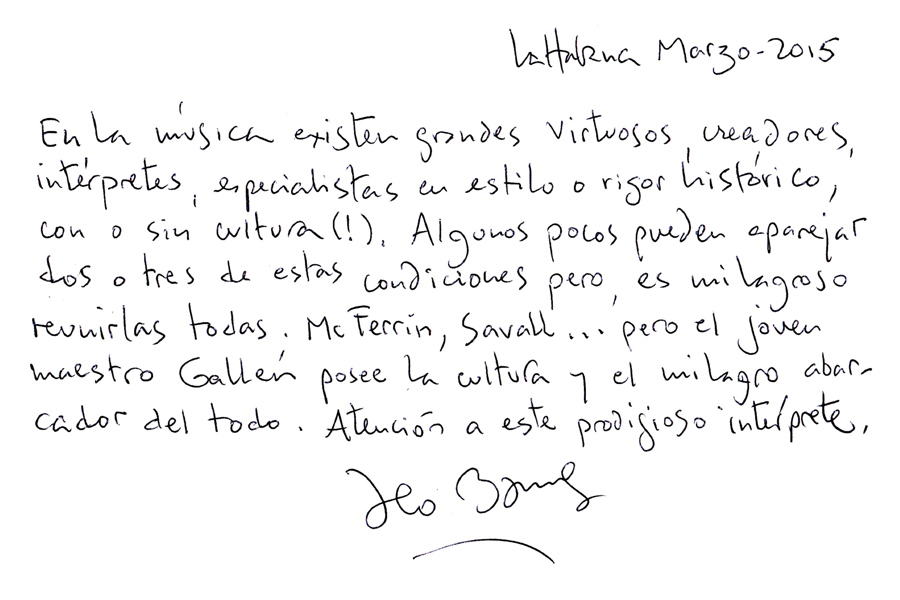 La Habana Marzo-2015
En la música existen grandes virtuosos, creadores,
intérpretes, especialistas en estilo o rigor histórico,
con o sin cultura(!). Algunos pocos pueden aparejar
dos o tres de estas condiciones pero, es milagroso
reunirlas todas. McFerrin, Savall... pero el joven
maestro Gallén posee la cultura y el milagro abar-
cador del todo. Atención a este prodigioso intérprete.
Leo